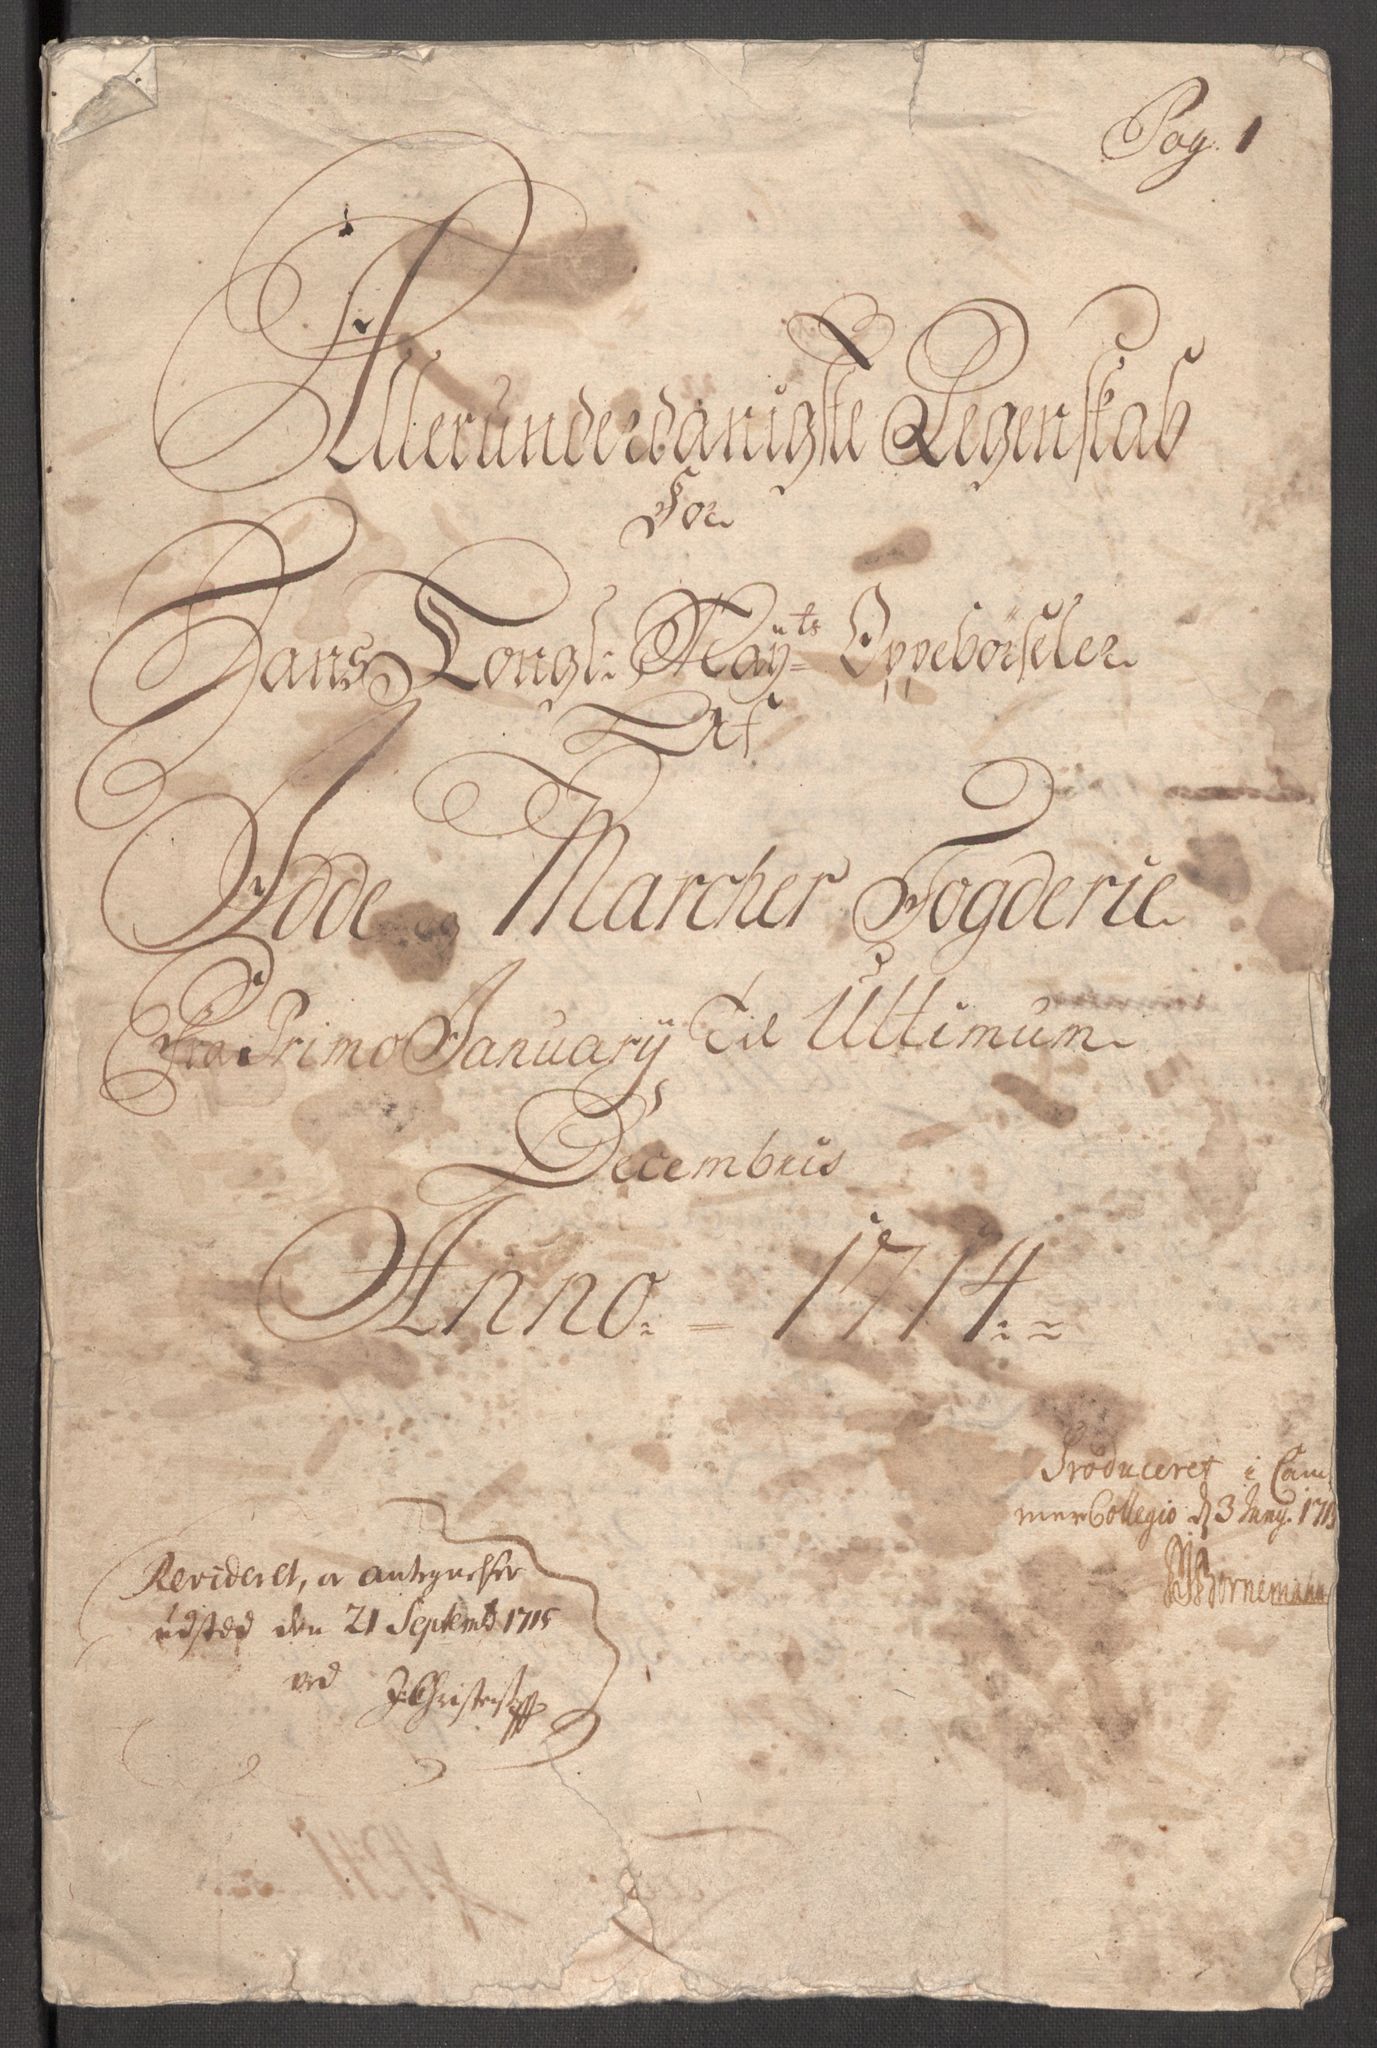 Pag. 1
Allerunderdanigste Regenskab
For
Hans Kongl: Mayts Oppebörseler
Af
Idde og Marcher Fogderie
Fra Primo January til Ultimum
Decembris
Anno 1714
Produceret i Cam
merCollegio d 3 Juny. 1715
Bornemann
Revideret, oc antegnelser
udsted den 21 Septemb 1715
ved J. Christens